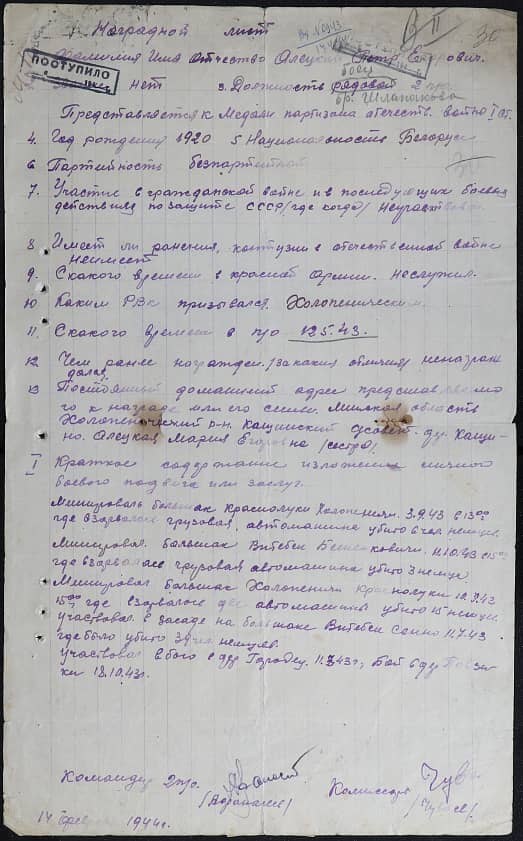 Наградной лист
Фамилия Имя Отчество Олецкий Петр Егорович.
ПОСТУПИЛО
нет 3. Должность рядовой 2 п/о
боец
бр. Шлапакова
Представляется к Медали партизана отечеств. войны I ст.
4. Год рождения 1920 5 Национальность Белорус
6 Партийность беспартийный
7. Участие в гражданской войне и в последующих боевых
действиях по защите СССР /где когда/ Неучаствовал
8 Имеет ли ранения, контузии в отечественной войне
Неимеет
9. С какого времени в красной армии. неслужил.
10 Каким РВК призывался. Холопеническим.
11. С какого времени в п/о 12.5.43.
12 Чем ранее награжден. /за какия отличия/ ненаграж
дался.
13 Постоянный домашний адрес представляемо
го к награде или его семьи. Минская область
Холопенический р-н. Кащинский с/совет. дер. Кащи-
но. Олецкая Мария Егоровна /сестра/.
I Краткое содержание изложения личного
боевого подвига или заслуг.
Минировал большак Краснолуки Холопеничи. 3.9.43 в 13 00
где взорвалась грузовая, автомашина убито 6 чел немцев.
Минировал. большак Витебск Бешенковичи. 11.10.43 в 15 00
где взорвалась грузовая автомашина убито 3 немца.
Минировал большак Холопеничи Краснолуки 10.9.43
15 00 где взорвалось две автомашины убито 15 немцев.
Участвовал в засаде на большаке Витебск Сенно 11.7.43
где было убито немцев
Участвовал в бою в дер Городец. 11.7.43г; Бой в дер
ки 18.10.43г.
Командир 2 п/о.
Комиссар
14 фев 1944г.